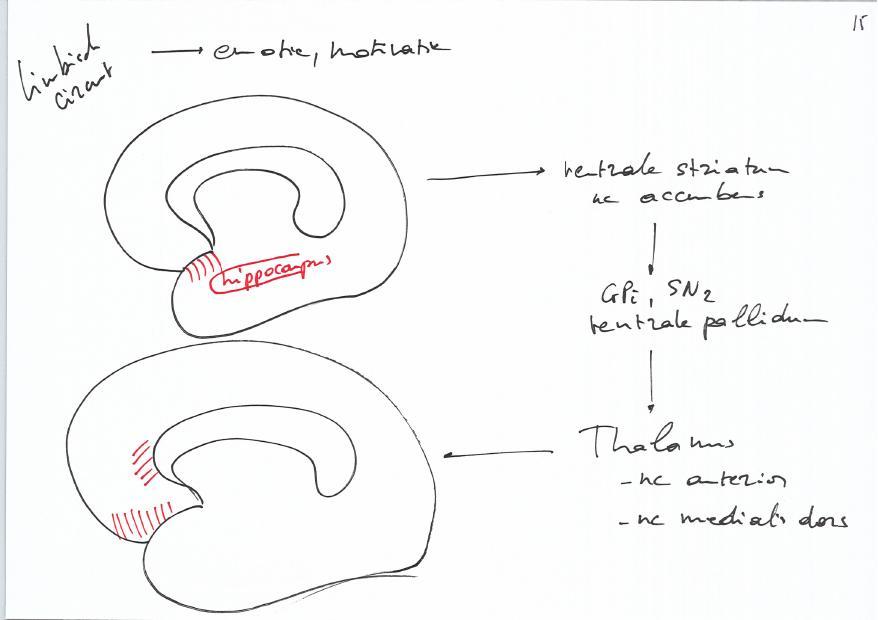 15
Limbisch
circuit
emotie, motivatie
ventrale striatum
nc accumbens
hippocampus
GPi, SN2
ventrale pallidum
Thalamus
- nc anterior
- nc medialis dors